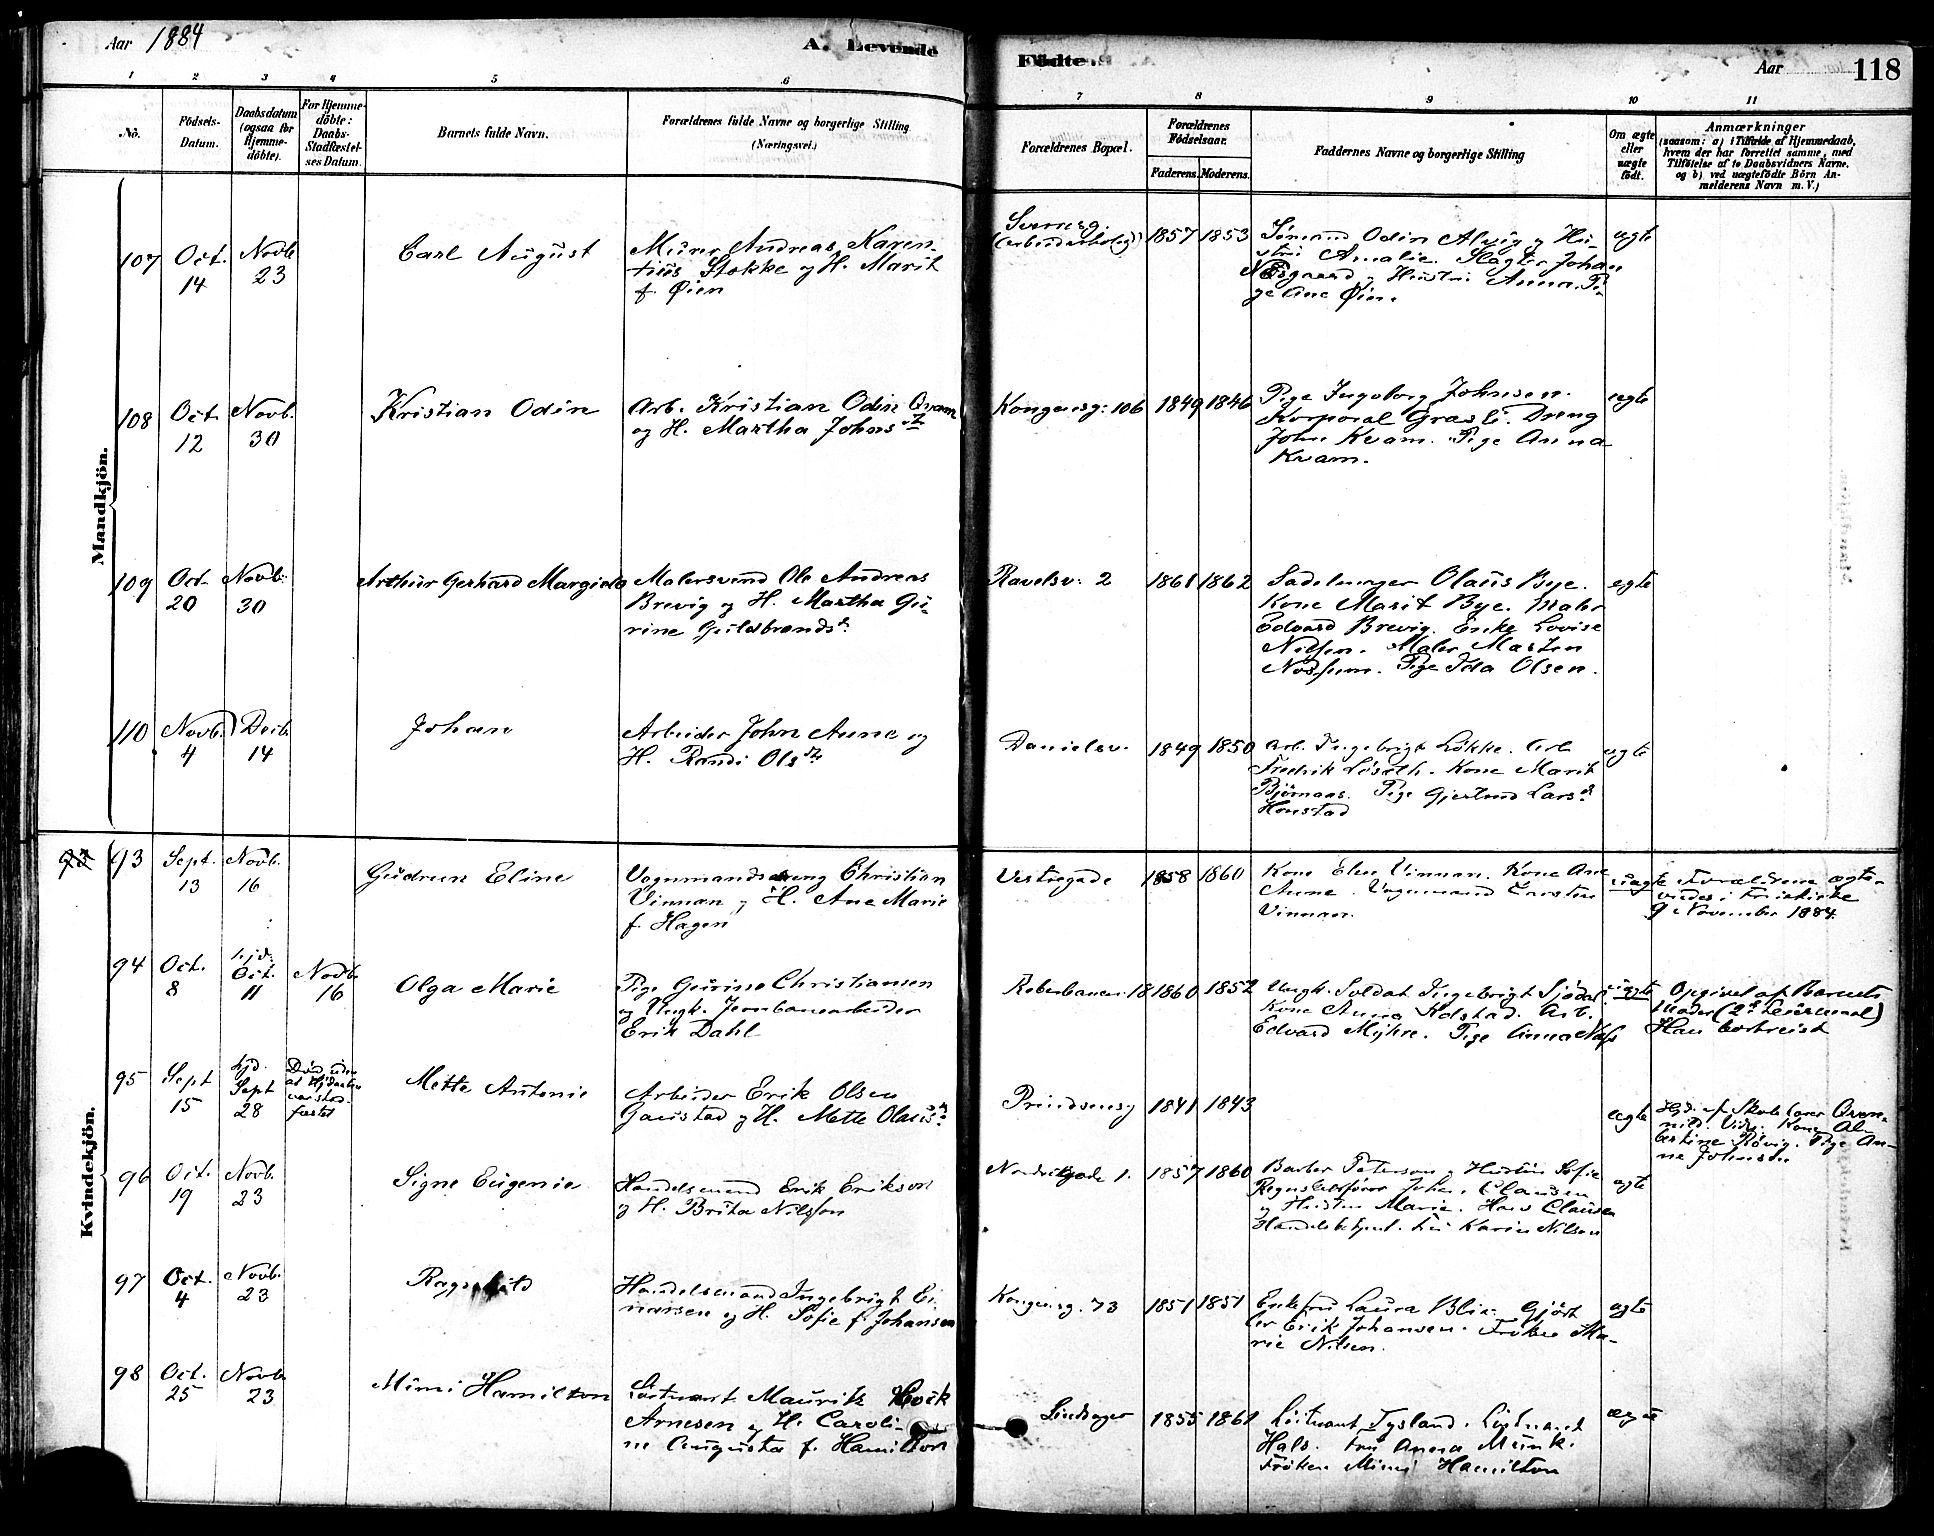 Aar 1884
A. Levende
Fødte.
Aar
118
1 2 3 4 5 6 7 8 9 10 11
No.
Fødsels-
Datum.
Daabsdatum
(ogsaa for
Hjemme-
døbte).
For Hjemme-
døbte:
Daabs-
Stadfæstel-
ses Datum.
Barnets fulde Navn.
Forældrenes fulde Navne og borgerlige Stilling
(Næringsvei.)
Forældrenes Bopæl.
Forældrenes
Fødselsaar.
Faderens. Moderens.
Faddernes Navne og borgerlige Stilling
Om ægte
eller
uægte
født.
Anmærkninger
(saasom: a) i Tilfælde af Hjemmedaab,
hvem der har forrettet samme, med
Tilføielse af to Daabsvidners Navne.
og b) ved uægtefødte Børn An-
melderens Navn m. V.)
Mandkjön.
107
Oct.
14
Novb.
23
Carl August
Murer Andreas Karen-
tius Stokke og H. Marit
f. Øien
(Arbeiderbolig)
1857 1853
Sømand Odin Alvig og Hu-
stru Amalie. Slagter Johan
og Hustru Anna. Pi-
ge Ane Øien.
ægte
108
Oct.
12
Novb.
30
Kristian Odin
Arb. Kristian Odin Qvam
og H. Martha Johnsdt.
Kongensg: 106
1849 1846
Pige Ingeborg Johnsen.
Korporal Grasli. Dreng
John Kvam. Pige Anna
Kvam.
ægte
109
Oct.
20
Novb.
30
Arthur Gerhard Margido
Malersvend Ole Andreas
Brevig og H. Martha Gu-
rine Guldbrandsd.
Ravelsv: 2
1861 1862
Sadelmager Olaus Bye.
Kone Marit Bye. Maler
Edvard Brevig. Enke Lovise
Nilsen. Maler Morten
Pige Ida Olsen.
ægte
110
Novb.
4
Decb.
14
Johan
Arbeider John Aune og
H. Randi Olsdt.
Danielsv.
1849 1850
Arb. Ingebrigt Løkke. Arb.
Fredrik Løseth. Kone Marit
Bjørnaas. Pige Gjertrud Larsd.
Honstad
ægte
Kvindekjön.
93 93
Sept.
13
Novb.
16
Gudrun Eline
Vognmandsdreng Christian
Vinnan og H. Ane Marie
f. Hagen
Vestregade
1858 1860
Kone Elen Vinnan. Kone Ane
Aune. Vognmand Carsten
Vinnan.
uægte
Forældrene ægte-
viedes i Frikirke
9 November 1884
94
Oct.
8
hjd.
Oct.
11
Novb.
16
Olga Marie
Pige Gurine Christiansen
og Ungk. Jernbanearbeider
Erik Dahl
Reberbanen 18
1860 1852
Ungk. Soldat Ingebrigt Sjødal.
Kone Anna Kolstad. Arb.
Edvard Myhre. Pige Anna Næss
uægte
Opgivet af Barnets
Moder (2d Leiermaal)
Han bortreist
95
Sept
15
hjd.
Sept
28
Død uden
at Hjdaaben
var stad-
fæstet
Mette Antonie
Arbeider Erik Olsen
Gaustad og H. Mette Olausdt.
Prindsensg
1841 1843
ægte
Hjd. af Skolelærer Oven-
nild. Vidn. Kone Al-
bertine Røvig. Pige An-
ne Johnsdt.
96
Oct.
19
Novb.
23
Signe Eugenie
Handelsmand Erik Erikson
og H. Brita Nilsson
Nordregade 1.
1857 1860
Barber Peterson og Hustru Sofie
Regnskabsfører Johan Clausen
og Hustru Marie. Hans Clausen
Handelsbetjent. Fru Karin Nilson
ægte
97
Oct.
4
Novb.
23
Ragnhild
Handelsmand Ingebrigt Ei-
narsen og H. Sofie f. Johansen
Kongensg. 73
1851 1851
Enkefru Laura Blix. Gjørt-
ler Erik Johansen. Frøken Ma-
rie Nilsen.
ægte
98
Oct.
25
Novb.
23
Mimi Hamilton
Løitnant Mauritz Hoick
Arnesen og H. Caroli-
ne Augusta f. Hamilton
1855 1861
Løitnant Tysland. Løitnant
Hals. Fru Anna Munk.
Frøken Mimi Hamilton
ægte